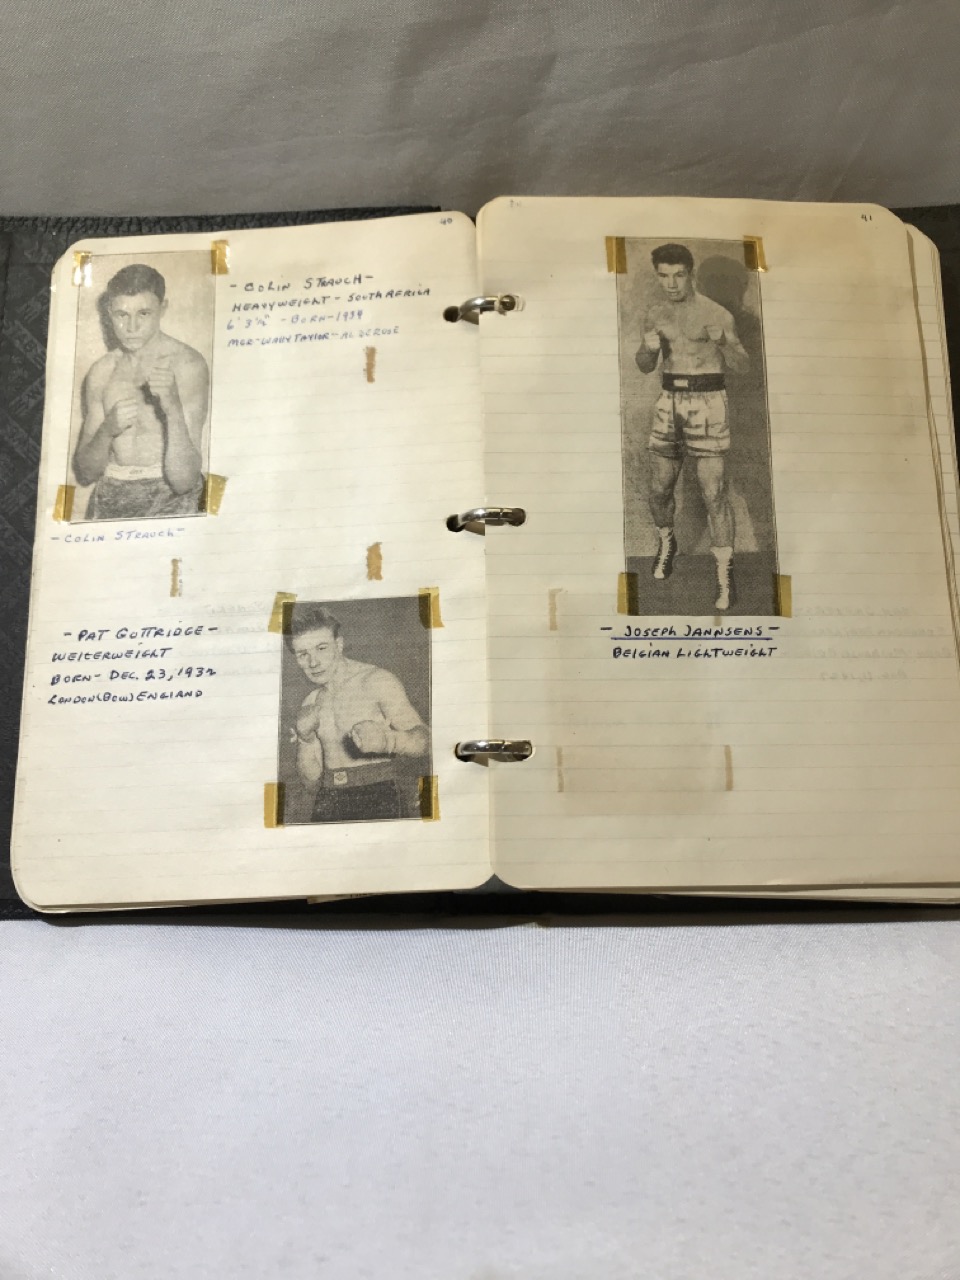 40
- COLIN STRAUCH -
HEAVYWEIGHT - SOUTH AFRICA
6' 3½" - BORN - 1939
MGR - WALLY TAYLOR - AL
- COLIN STRAUCH -
- PAT GUTTRIDGE -
WELTERWEIGHT
BORN - DEC. 23, 1932
LONDON (BOW) ENGLAND
41
- JOSEPH JANNSENS -
BELGIAN LIGHTWEIGHT